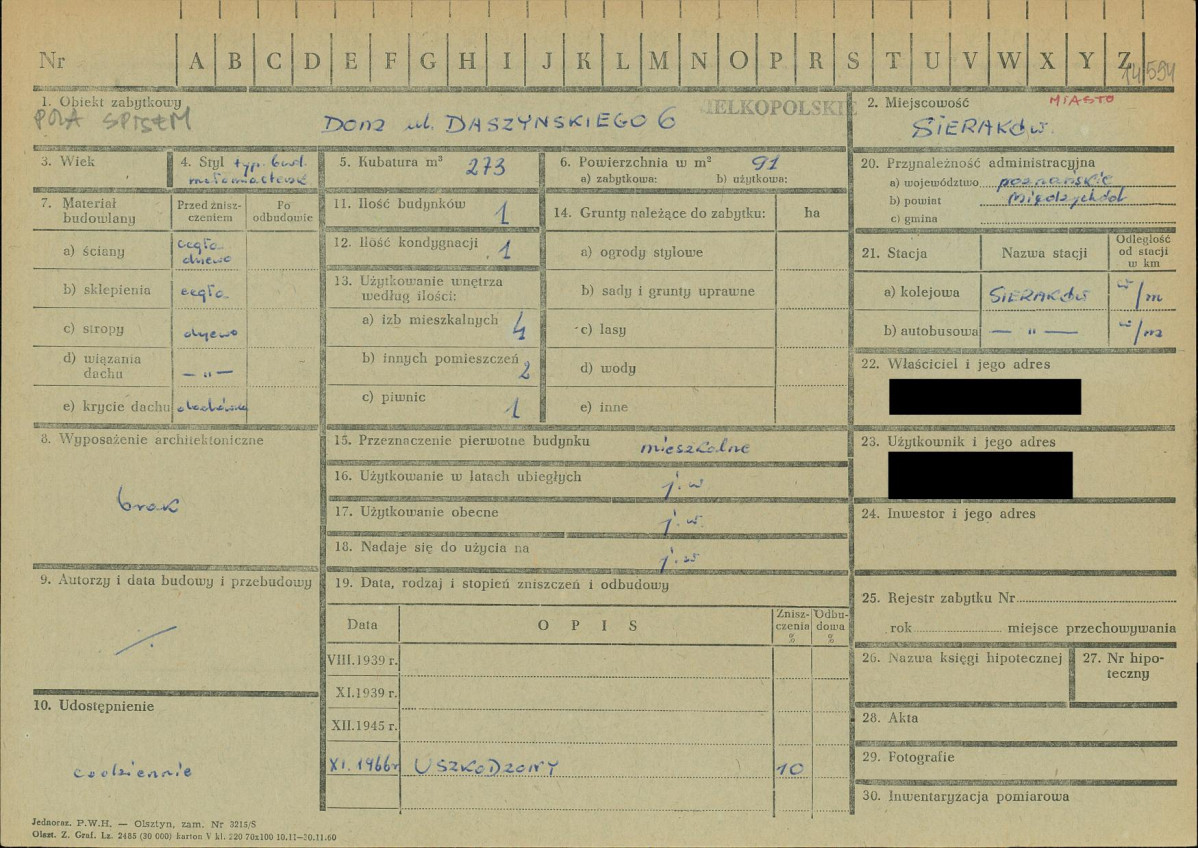 Nr A B C D E F G H I J K L M N O P R S T U V W X Y Z
14594
1. Obiekt zabytkowy
POZA SPISEM
DOM ul. DASZYNSKIEGO 6
WIELKOPOLSKIE
2. Miejscowość
MIASTO
SIERAKÓW
3. Wiek
4. Styl typ. bud.
małomiasteczk.
5. Kubatura m³ 273
6. Powierzchnia w m² 91
a) zabytkowa: b) użytkowa:
20. Przynależność administracyjna
a) województwo poznańskie
b) powiat Międzychód
c) gmina
7. Materiał budowlany
Przed zniszczeniem
Po odbudowie
a) ściany cegła drewo
b) sklepienia cegła
c) stropy drewo
d) wiązania dachu — „ —
e) krycie dachu dachówka
11. Ilość budynków 1
12. Ilość kondygnacji 1
13. Użytkowanie wnętrza według ilości:
a) izb mieszkalnych 4
b) innych pomieszczeń 2
c) piwnic 1
14. Grunty należące do zabytku: ha
a) ogrody stylowe
b) sady i grunty uprawne
c) lasy
d) wody
e) inne
21. Stacja
Nazwa stacji
Odległość od stacji w km
a) kolejowa SIERAKÓW w/m
b) autobusowa — „ — w/m
22. Właściciel i jego adres
23. Użytkownik i jego adres
24. Inwestor i jego adres
8. Wyposażenie architektoniczne
brak
15. Przeznaczenie pierwotne budynku mieszkalne
16. Użytkowanie w latach ubiegłych j.w
17. Użytkowanie obecne j.w.
18. Nadaje się do użycia na j.w
9. Autorzy i data budowy i przebudowy
19. Data, rodzaj i stopień zniszczeń i odbudowy
Data
O P I S
Zniszczenia %
Odbudowa %
VIII.1939 r.
XI.1939 r.
XII.1945 r.
XI. 1966r USZKODZONY 10
10. Udostępnienie
codziennie
25. Rejestr zabytku Nr
rok miejsce przechowywania
26. Nazwa księgi hipotecznej
27. Nr hipoteczny
28. Akta
29. Fotografie
30. Inwentaryzacja pomiarowa
Jednoraz. P.W.H. — Olsztyn, zam. Nr 3215/S
Olszt. Z. Graf. Lz. 2485 (30 000) karton V kl. 220 70x100 10.11—30.11.60